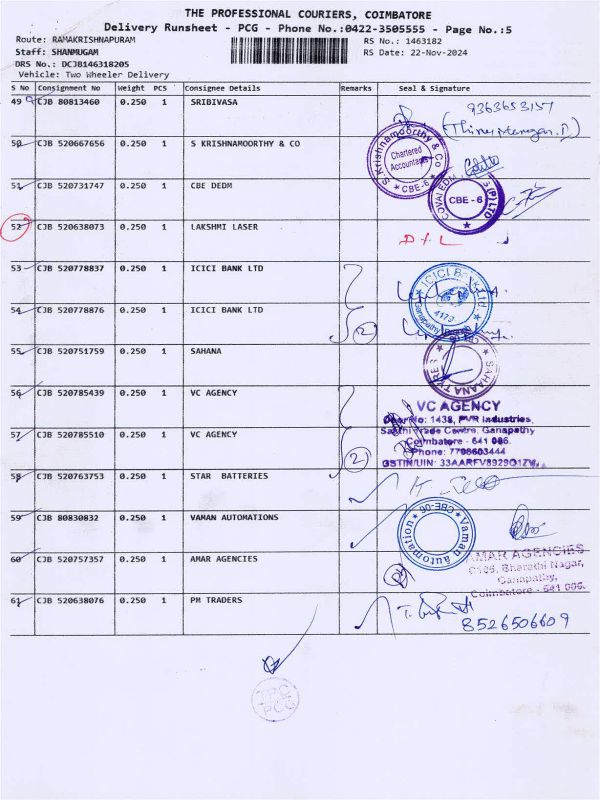 THE PROFESSIONAL COURIERS, COIMBATORE
Delivery Runsheet - PCG - Phone No.:0422-3505555 - Page No.:5
Route: RAMAKRISHNAPURAM RS No.: 1463182
Staff: SHANMUGAM RS Date: 22-Nov-2024
DRS No.: DCJB146318205
Vehicle: Two Wheeler Delivery
S No Consignment No Weight PCS Consignee Details Remarks Seal & Signature
49 CJB 80813460 0.250 1 SRIBIVASA 9363653157
50 CJB 520667656 0.250 1 S KRISHNAMOORTHY & CO
S.Krishnamoorthy & Co
Chartered
Accountant
CBE-6
51 CJB 520731747 0.250 1 CBE DEDM
COVAI EDM S (P) LTD
CBE - 6
52 CJB 520638073 0.250 1 LAKSHMI LASER
53 CJB 520778837 0.250 1 ICICI BANK LTD
ICICI Bank Ltd
Ganapathy Branch
54 CJB 520778876 0.250 1 ICICI BANK LTD 2
55 CJB 520751759 0.250 1 SAHANA
56 CJB 520785439 0.250 1 VC AGENCY
VC AGENCY
Door No: 1438, PVR Industries,
Sakthi Trade Centre, Ganapathy
57 CJB 520785510 0.250 1 VC AGENCY 2
Coimbatore - 641 006.
Phone: 7708603444
GSTIN/UIN: 33AARFV8929Q1ZW
58 CJB 520763753 0.250 1 STAR BATTERIES
59 CJB 80830832 0.250 1 VAMAN AUTOMATIONS
Vaman Automation
CBE-06
60 CJB 520757357 0.250 1 AMAR AGENCIES
AMAR AGENCIES
Bharathi Nagar,
Ganapathy,
Coimbatore - 641 006.
61 CJB 520638076 0.250 1 PM TRADERS
8526506609
TPC
PCG